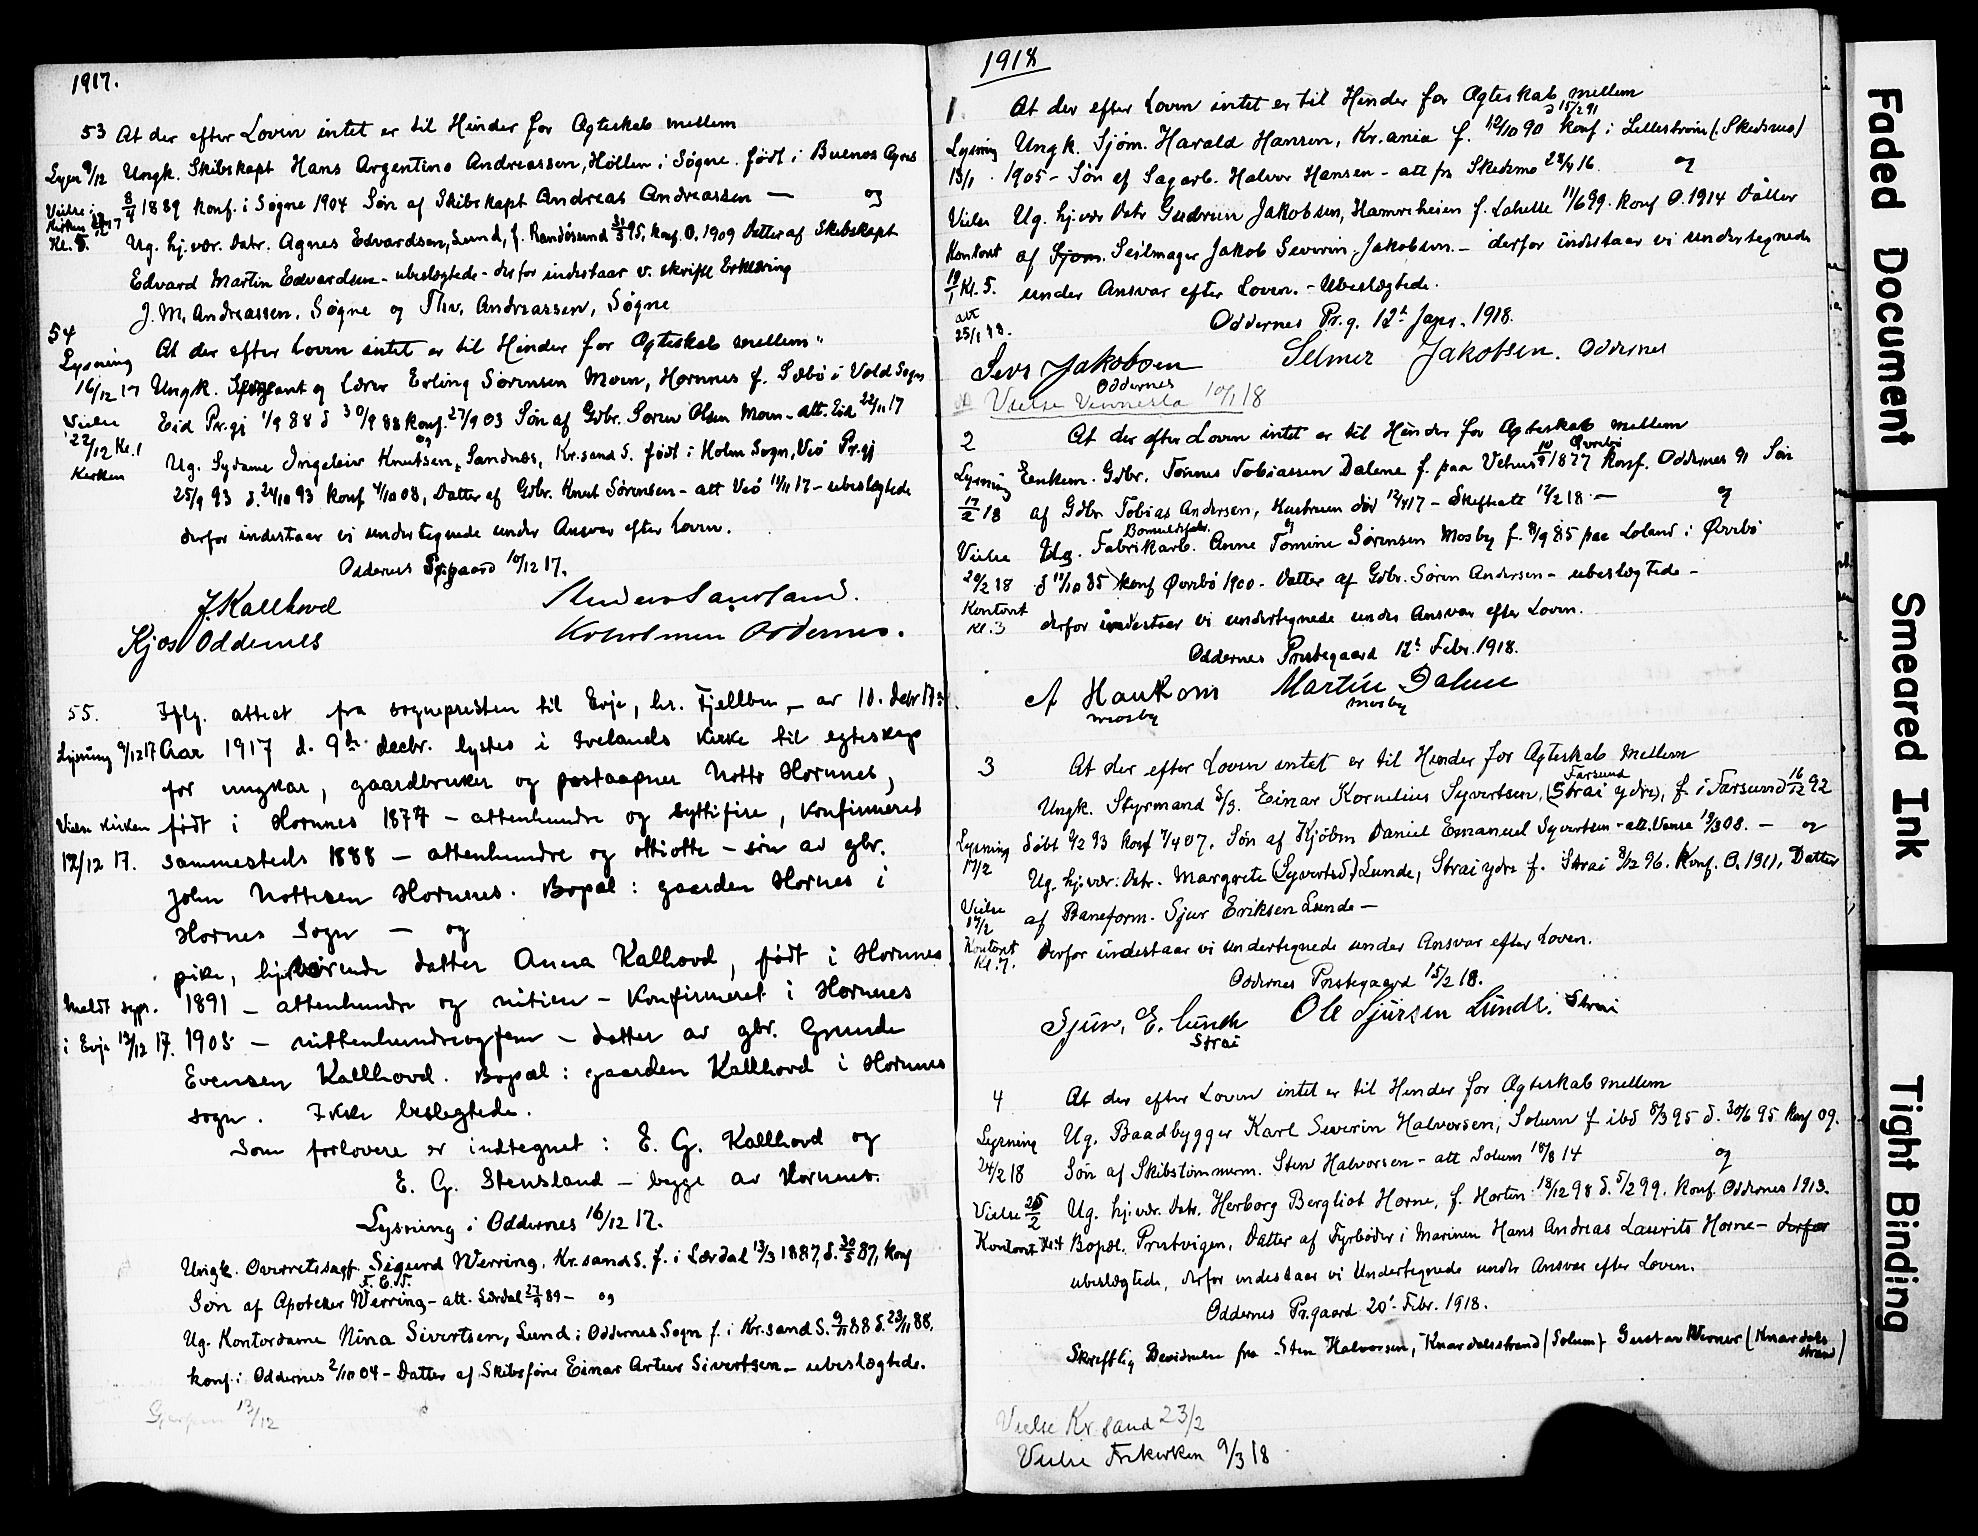 1917.
53 At der efter Loven intet er til Hinder for Ægteskab mellem
Lysn 9/12 Ungk. Skibskapt Hans Argentino Andreassen, Høllen i Søgne. født i Buenos Ayres
Vielse i Kirken 28/12 17 Kl. 5. 8/4 1889 konf. i Søgne 1904 Søn af Skibskapt Andreas Andreassen — og
Ug. hj. vær. Datr. Agnes Edvardsen, Lund, f. Randøsund 31/3 95, konf. O. 1909 Datter af Skibskapt
Edvard Martin Edvardsen - ubeslægtede - derfor indestaar v. skriftl Erklæring
J. M. Andreassen, Søgne og Thv. Andreassen, Søgne
54
Lysning At der efter Loven intet er til Hinder for Ægteskab mellem
16/12 17 Ungk. Sergeant og Lærer Erling Sørensen Moen, Hornnes f. Sæbø i Vold Sogn
Vielse Eid Pr.gj 1/9 88 d 30/9 88 konf. 27/9 03 Søn af Gdbr. Søren Olsen Moen - att. Eid 22/11 17
22/12 Kl. 1 og
Kirken Ug. Sydame Ingeleiv Knutsen, Sandnæs, Kr.sand S. født i Holm Sogn, Veø Pr.gj
25/9 93 d. 24/10 93 konf 4/10 08, Datter af Gdbr. Knut Sørensen - att Veø 14/11 17 - ubeslægtede
derfor indestaar vi undertegnede under Ansvar efter Loven.
Oddernes Prgaard 10/12 17.
J. Kallhovd
Kjos Oddernes Koholmen Oddernes.
55. Iflg. attest fra sognepresten til Evje, hr. Fjellbu, av 10. decbr 17:
Lysning 9/12 17 Aar 1917 d. 9de decbr. lystes i Ivelands kirke til egteskap
for ungkar, gaardbruker og postaapner Notto Hornnes,
Vielse Kirken født i Hornnes 1874 - attenhundre og syttifire, konfirmeret
17/12 17. sammesteds 1888 - attenhundre og ottiotte - søn av gbr.
John Nottesen Hornnes. Bopæl: gaarden Hornes i
Hornes Sogn — og
pike, hjemværende datter Anna Kallhovd, født i Hornnes
Meldt sogpr. 1891 - attenhundre og nitien - konfirmeret i Hornnes
i Evje 19/12 17. 1905 - nittenhundreogfem - datter av gbr. Gunde
Evensen Kallhovd. Bopæl: gaarden Kallhovd i Hornnes
sogn. Ikke beslegtede.
Som forlovere er indtegnet: E. G. Kallhovd og
E. G. Stensland - begge av Hornnes.
Lysning i Oddernes 16/12 17.
Ungk. Overretssagf. Sigurd Werring, Kr.sand S. f. i Lærdal 13/3 1887, d. 30/5 87, konf
Søn af Apoteker Werring - att. Lærdal 27/9 89 - og
Ug. Kontordame Nina Sivertsen, Lund i Oddernes Sogn f. i Kr.sand S. 9/9 88 d. 23/11 88.
konf. i Oddernes 2/10 04 - Datter af Skibsfører Einar Artur Sivertsen - ubeslægtede.
Gjerpen 13/12
1918
1. At der efter Loven intet er til Hinder for Ægteskab mellem
d 15/2 91
Lysning Ungk. Sjøm. Harald Hansen, Kr.ania f. 18/10 90 konf i Lillestrøm (Skedsmo)
13/1 1905 - Søn af Sagarb. Halvor Hansen - att fra Skedsmo 28/4 16. og
Vielse Ug. hj. vær Datr Gudrun Jakobsen, Hamreheien f. Lahelle 11/6 99. konf O. 1914 Datter
Kontoret af Sjøm. Seilmager Jakob Severin Jakobsen. - derfor indestaar vi undertegnede
19/1 Kl. 5. under Ansvar efter Loven. - Ubeslægtede.
att 25/1 18. Oddernes Pr.g. 12te Janr. 1918.
Sevr Jakobsen Selmer Jakobsen. Oddernes
Oddernes
Vielse Vennesla 10/1 18
2 At der efter Loven intet er til Hinder for Ægteskab mellem
Øvrebø
Lysning Enkem. Gdbr. Tønnes Tobiassen Dalene f. paa Vehus 10/9 1877 konf. Oddernes 91 Søn
17/2 18 af Gdbr Tobias Andersen, Hustruen død 12/4 17 - Skifteatt 12/2 18 - og
Bomuldsfabr.
Vielse Ug. Fabrikarb. Anne Tomine Sørensen Mosby f. 8/9 85 paa Loland i Øvrebø
20/2 18 d 11/10 85 konf Øvrebø 1900 - Datter af Gdbr. Søren Andersen - ubeslægtede -
Kontoret Kl. 3 derfor indestaar vi undertegnede under Ansvar efter Loven.
Oddernes Prestegaard 12te Febr. 1918.
A Haukom Martin Dalene
Mosby Mosby
3 At der efter Loven intet er til Hinder for Ægteskab mellem
Farsund
Ungk. Styrmand Einar Kornelius Syvertsen, (Strai ydre), f. i Farsund 16/12 92
Lysning Døbt 4/2 93 konf 7/4 07. Søn af Kjøbm Daniel Emanuel Syvertsen - att. Vanse 19/3 08. - og
17/2 Ug. hj. vær. Datr. Margrete (Syvertsd) Lunde, Strai ydre f. Strai 8/12 96. Konf. O. 1911, Datter
Vielse 17/2 af Baneform. Sjur Eriksen Lunde -
Kontoret Kl. 7. Derfor indestaar vi undertegnede under Ansvar efter Loven.
Oddernes Prestegaard 15/2 18.
Sjur. E. Lunde Ole Sjursen Lunde. Strai
Strai
4 At der efter Loven intet er til Hinder for Ægteskab mellem
Lysning Ug. Baadbygger Karl Severin Halvorsen, Solum f ibd 8/3 95 d. 30/6 95 konf 09.
24/2 18 Søn af Skibstømmerm. Sten Halvorsen - att Solum 18/8 14 og
Vielse 25/2 Ug. hj. vær. Datr. Herborg Bergliot Horne, f. Horten 18/12 98 d. 5/2 99. konf. Oddernes 1913.
Kontoret Kl 4 Bopæl. Prestvigen, Datter af Fyrbøder i Marinen Hans Andreas Laurits Horne - derfor
ubeslægtede, derfor indestaar vi Undertegnede under Ansvar efter Loven.
Oddernes Pr.gaard 20' Febr. 1918.
Skriftlig Bevidnelse fra Sten Halvorsen, Knardalsstrand (Solum) Gustav Werner (Knardalsstrand)
Vielse Kr.sand 23/2
Vielse Frikirken 9/3 18
Faded Document
Smeared Ink
Tight Binding